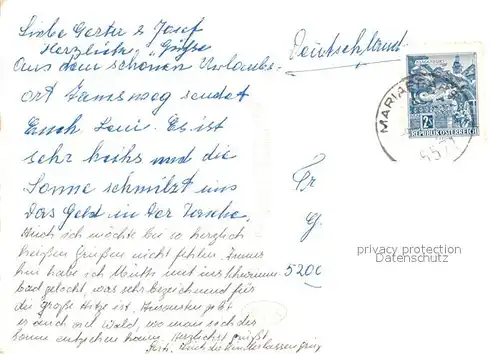 Liebe Gerta & Josef
Herzliche Grüße
Aus dem schönen Urlaubs-
ort sendet
Euch Es ist
sehr heiß und die
Sonne schmilzt uns
das Geld in der Tasche.
Auch ich möchte bei so herzlich
heißen Grüßen nicht fehlen. Immer
hin habe ich
bad gelockt, was sehr bezeichnend für
die große Hitze ist. Ansonsten geht
es auch auf Wald, wo man sich der
Sonne entziehen kann. Herzlichst grüßt
Auch die Kinder lassen
Deutschland
Fr
G.
5200
MARIA
9571
2S
REPUBLIK ÖSTERREICH
privacy protection
Datenschutz